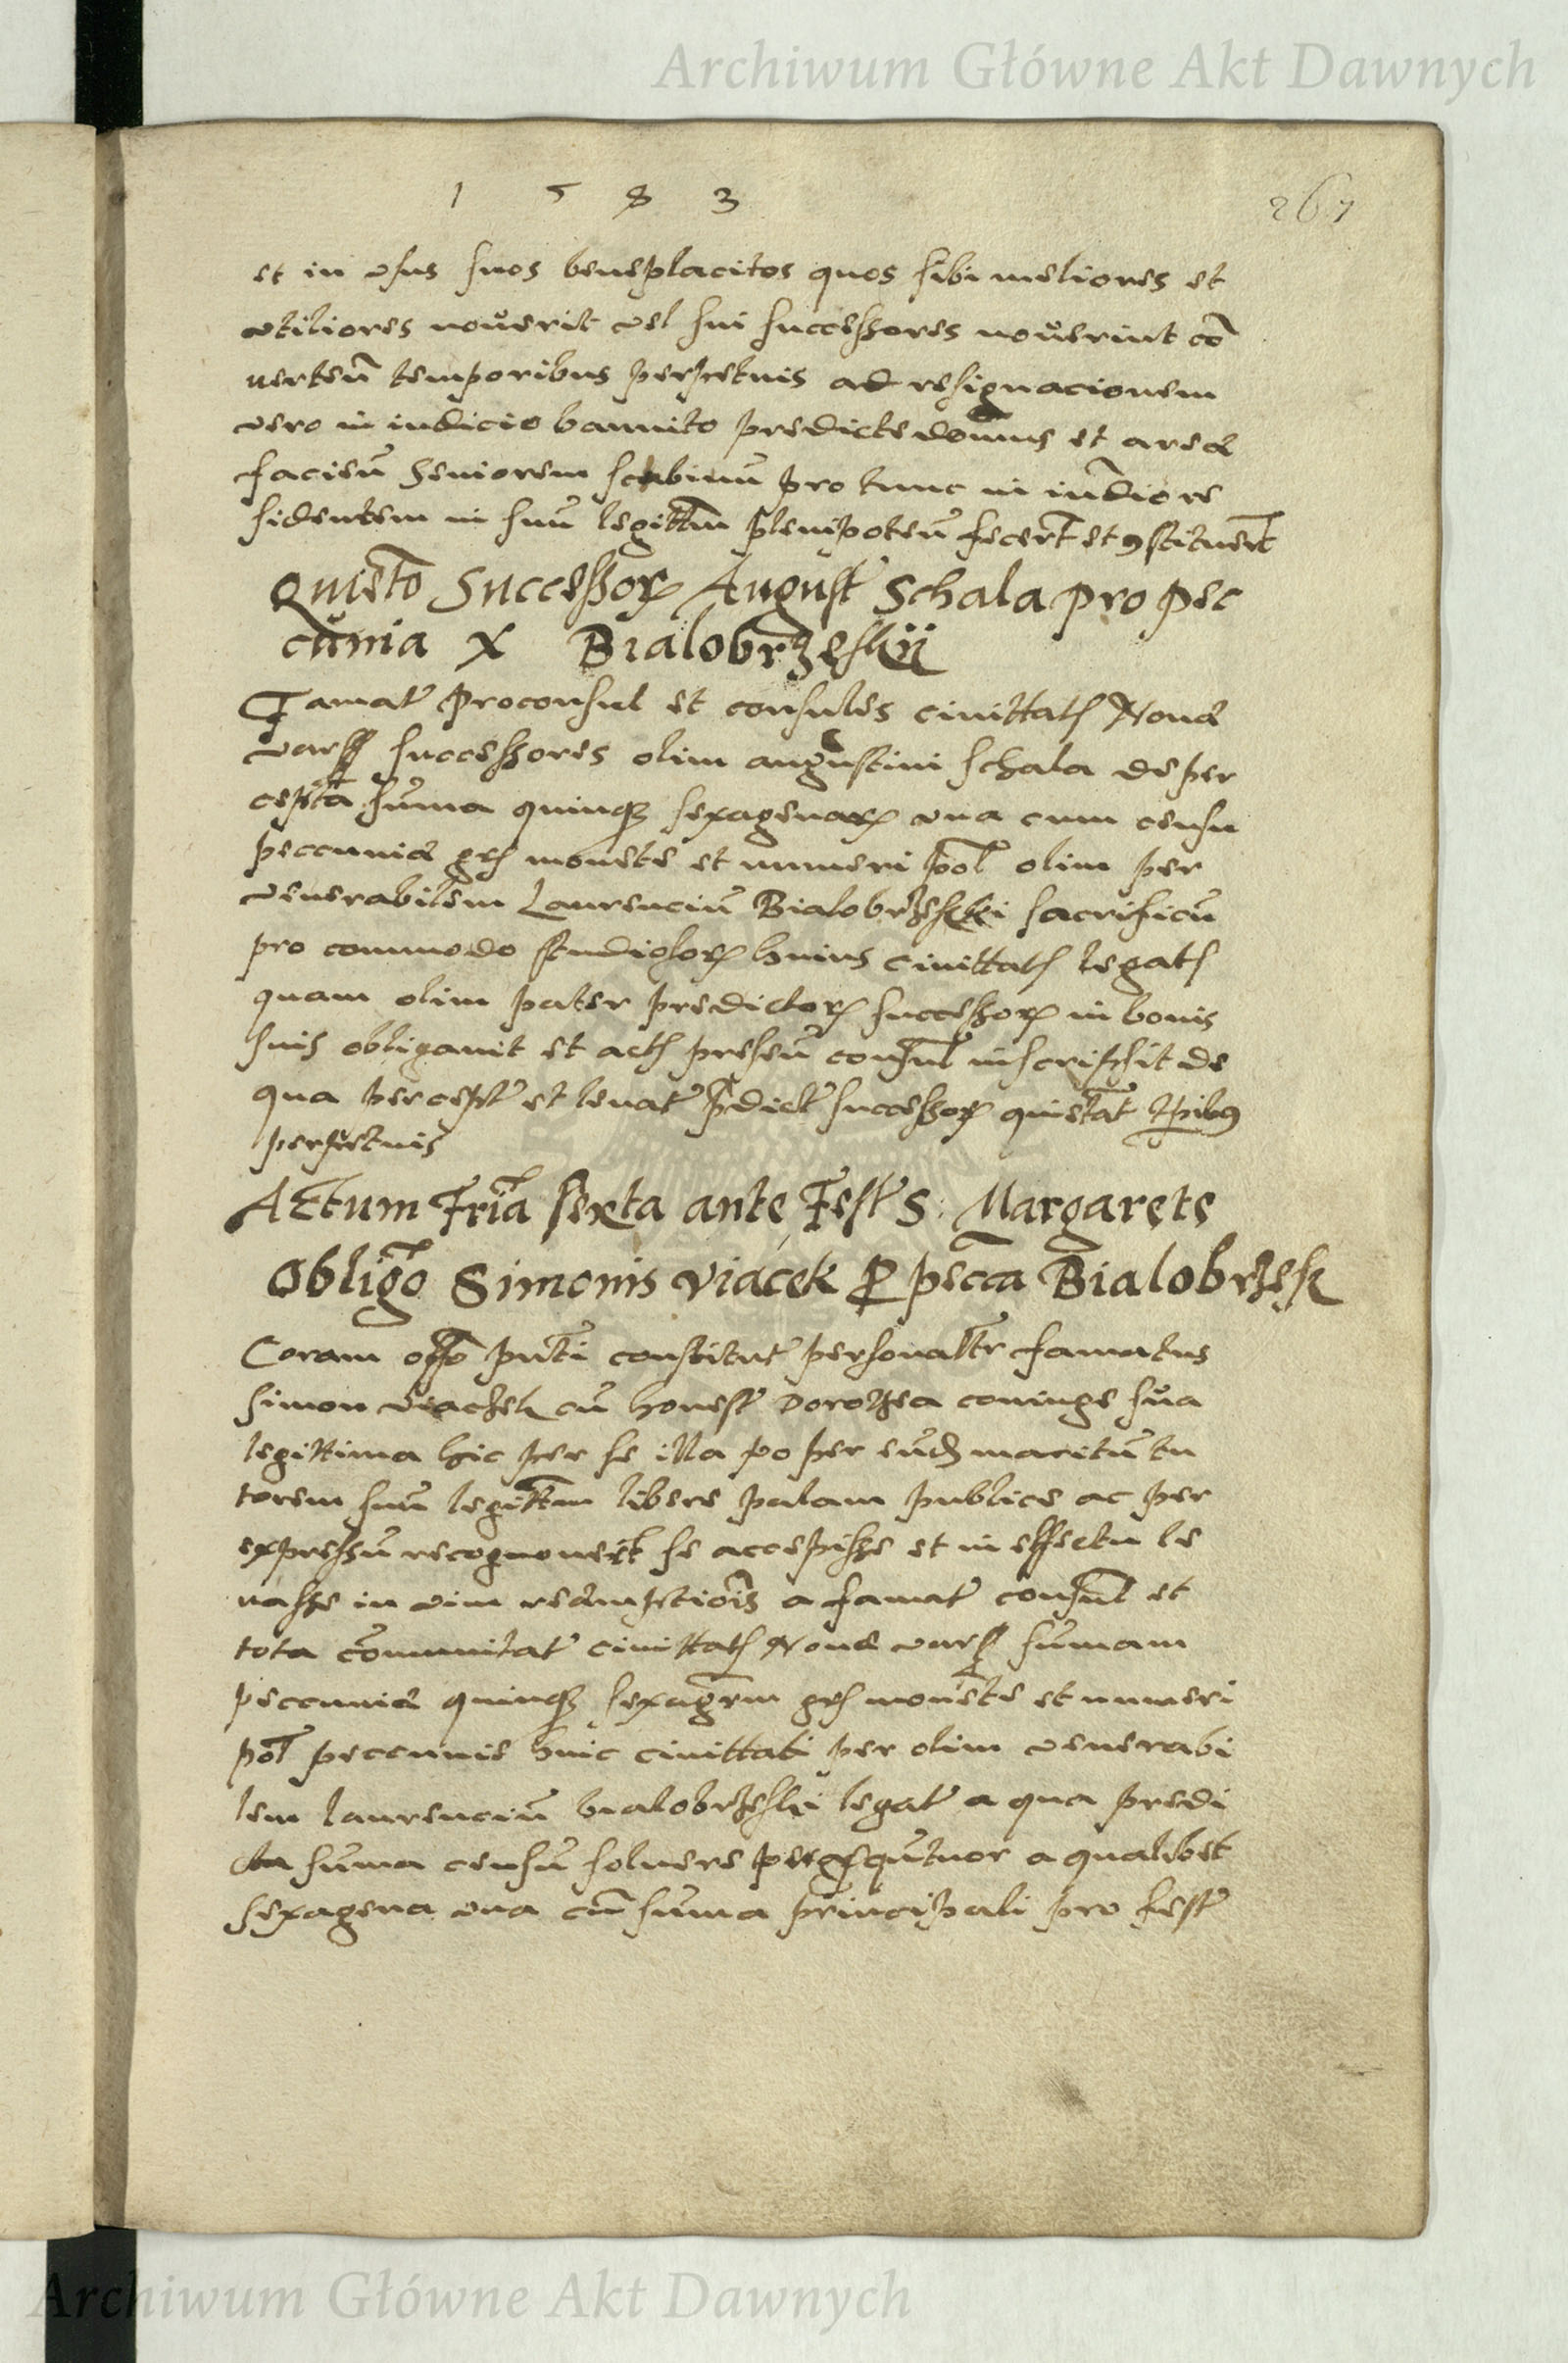 Archiwum Główne Akt Dawnych
1 5 8 3
267
et in vsus suos beneplacitos quos sibi meliores et
vtiliores noŭerit vel sui successores noŭerint cō
uerteñ temporibus perpetuis ad resignacionem
vero in iudicio bannito predicte domus et areæ
facieñ Seniorem scabinū pro tunc in iudicio re
sidentem in suū legittm̄ plenipoteñ fecert̄ et 9stituert̄
Quieto Successorꝝ August Schala pro pec
cunia X Bialobrzeskij
Famat proconsul et consules ciuittatꝭ Nouæ
vars successores olim augustini schala de per
cepta sūma quinqꝫ sexagenarꝝ vna cum censu
peccuniæ grꝭ monete et numeri pol olim per
venerabilem Laurenciū Bialobrzeski sacrificū
pro commodo studiosorꝝ huius ciuittatꝭ legatꝭ
quam olim pater predictorꝝ successorꝝ in bonis
suis obligauit et actꝭ preseñ consul inscripsit de
qua percept et leuat pdict successorꝝ quietat tpib9
perpetuis
Actum Fria sexta ante Fest S: Margarete
Obligo Simonis viacek ꝓ pecca Bialobrzesk
Coram offo pnti constitut personaltr famatus
Simon viaczek cū honest Dorothea coniuge sŭa
legittima hic per se illa ꝟo per eūdꝫ maritū tu
torem suū legittm libere palam publice ac per
expressū recognouert se accepisse et in effectu le
uasse in vim redemptiois a famat consul et
tota cōmunitat ciuittatꝭ Nouæ vars sūmam
peccuniæ quinqꝫ sexagenm grꝭ monete et numeri
pol peccunie huic ciuittati per olim venerabi
lem laurenciū bialobrzeski legat a qua predi
cta sūma censū soluere quatuor a qualibet
sexagena vna cū sūma principali pro fest
Archiwum Główne Akt Dawnych